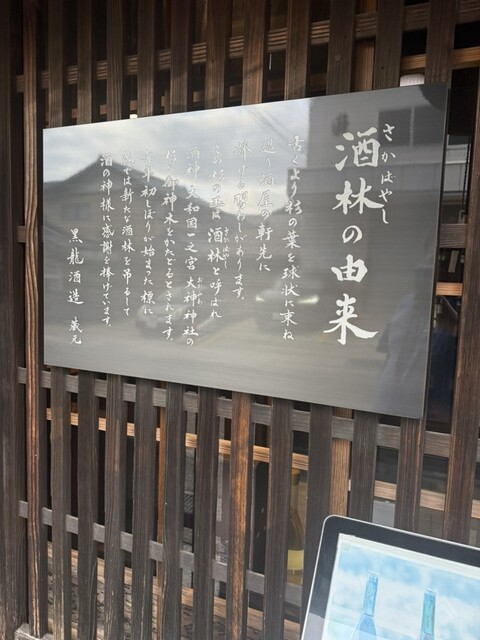 さかばやし
酒林の由来
古くより杉の葉を球状に束ね
造り酒屋の軒先に
掛ける習わしがあります。
この杉の玉は酒林と呼ばれ
さかばやし
酒神 大和国一之宮 大神神社の
おおみわ
杉の御神木をかたどるとされます。
毎年 初しぼりが始まった標に
蔵では新たな酒林を吊るして
酒の神様に感謝を捧げています。
黒龍酒造 蔵元